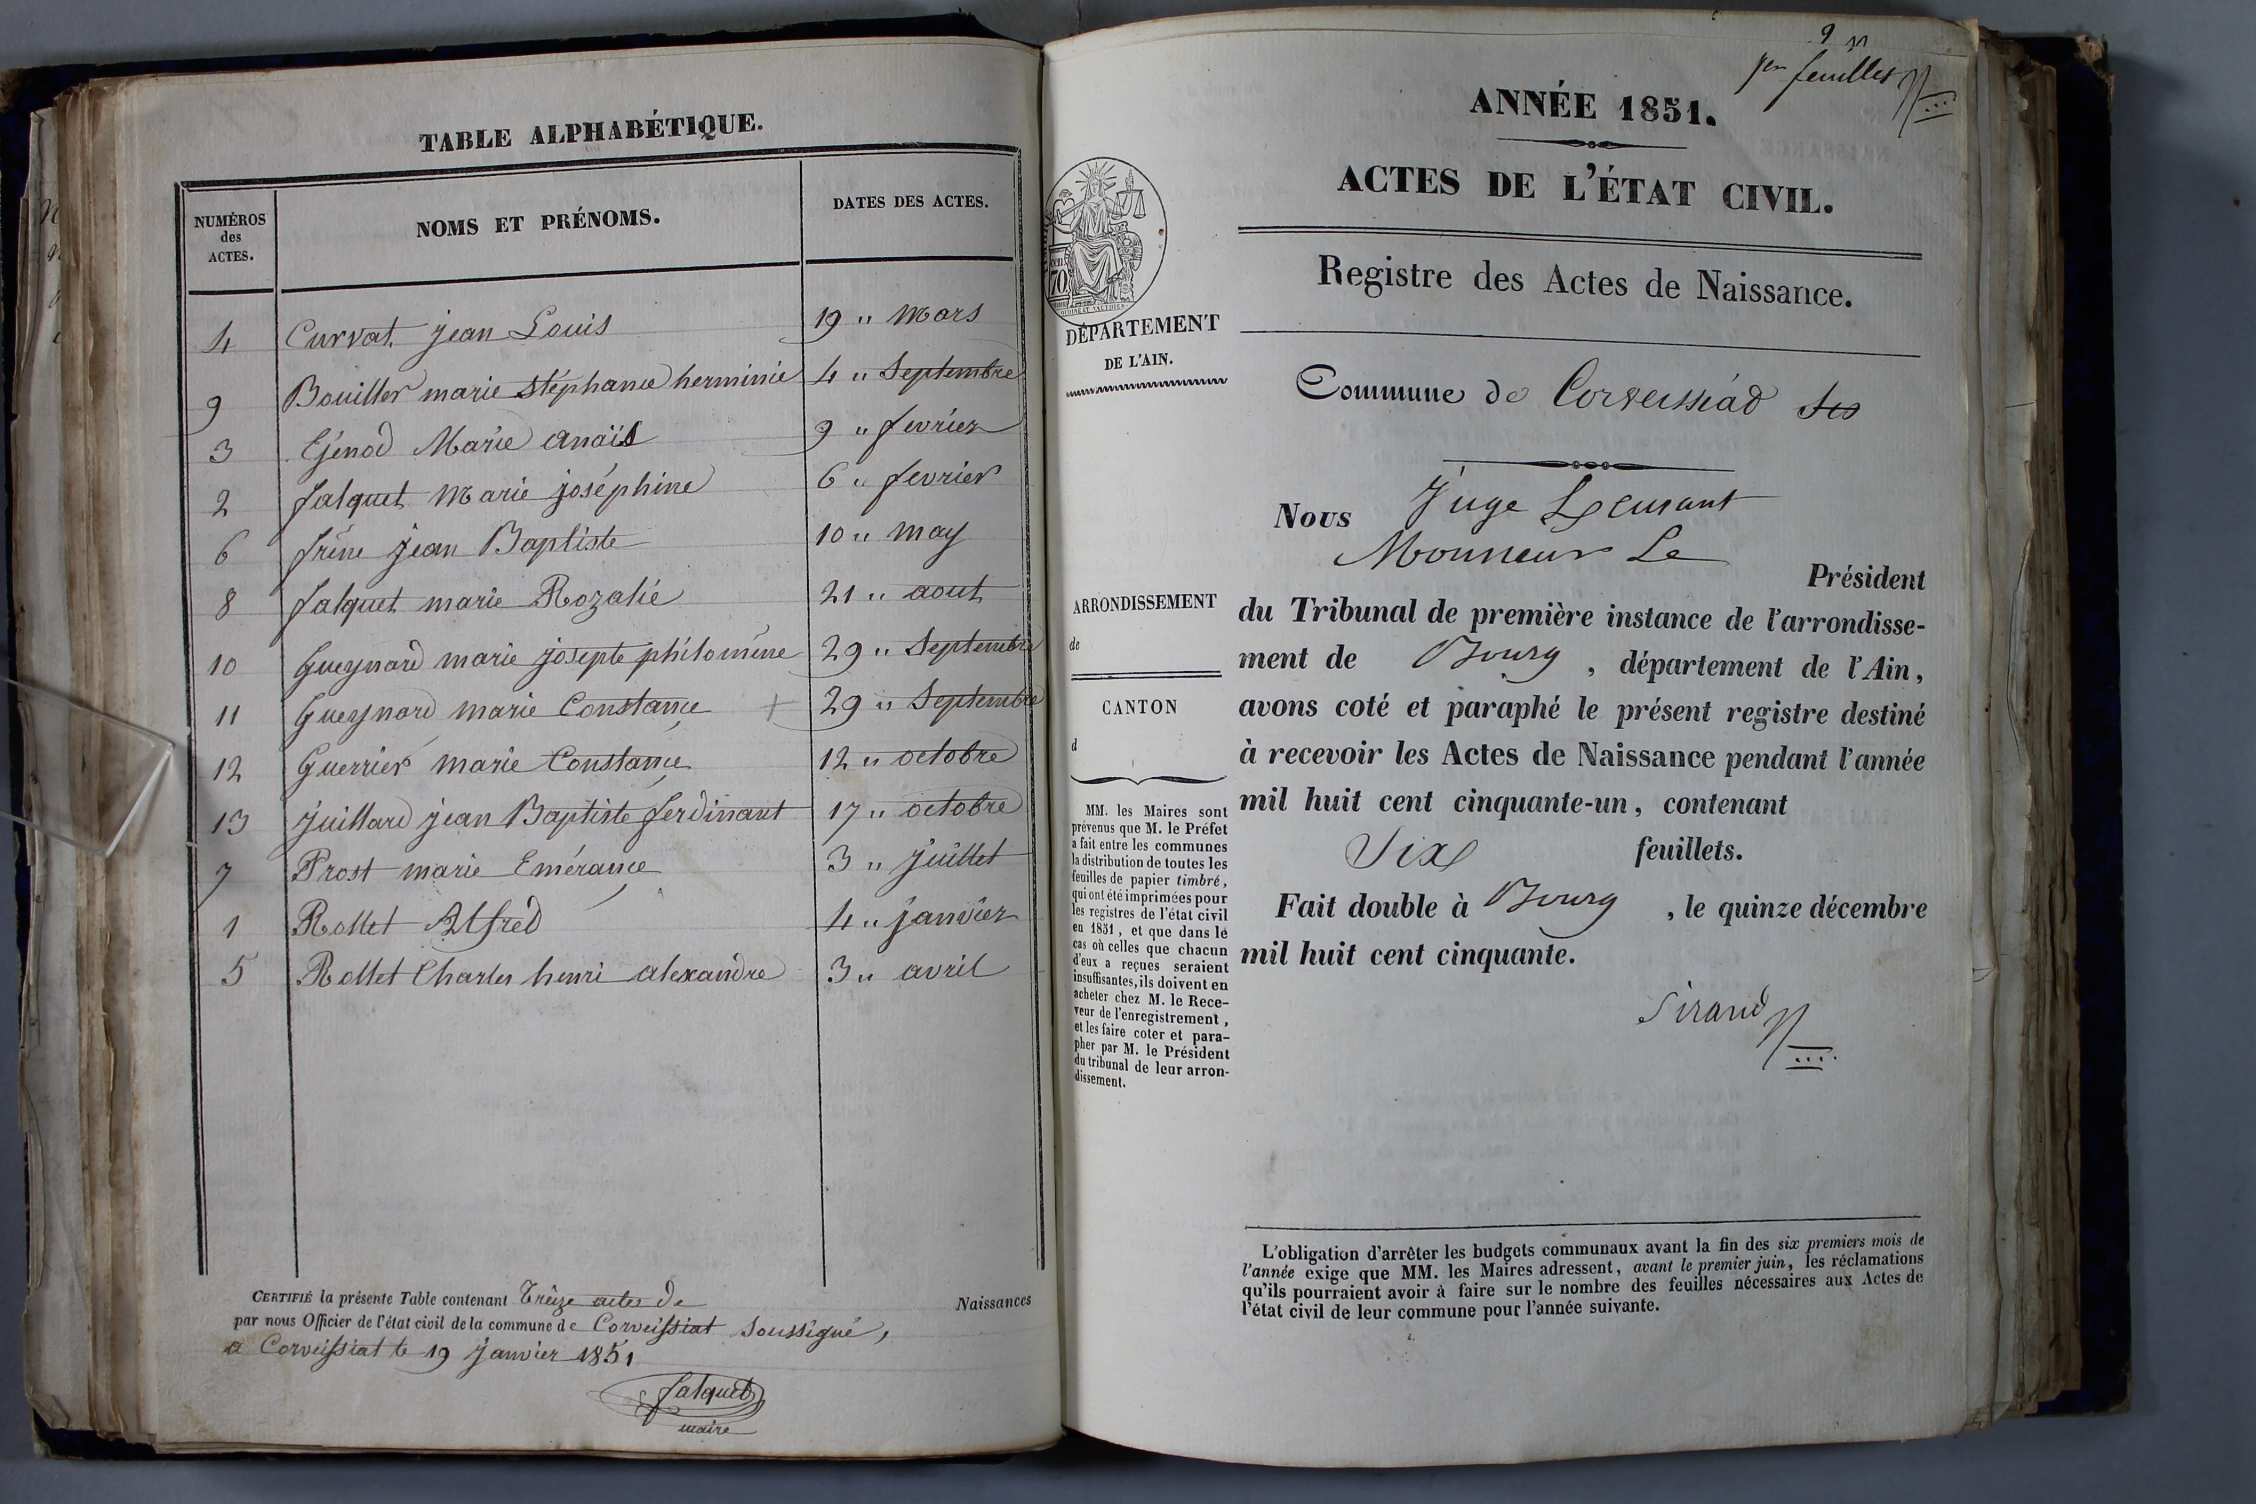 TABLE ALPHABÉTIQUE.
NUMÉROS des ACTES. NOMS ET PRÉNOMS. DATES DES ACTES.
4 Curvat jean Louis 19 " Mars
9 Bouiller marie stéphanie herminie 4 " Septembre
3 Génod Marie anaïs 9 " fevrier
2 falquet Marie joséphine 6 " fevrier
6 frène jean Baptiste 10 " may
8 falquet marie Rozalie 21 " aout
10 Gueynard marie josepte philomène 29 " Septembre
11 Gueynard marie Constance + 29 " Septembre
12 Guerrier marie Constance 12 " octobre
13 juillard jean Baptiste ferdinant 17 " octobre
7 Prost marie Emérance 3 " juillet
1 Rollet Alfred 4 " janvier
5 Rollet Charles henri alexandre 3 " avril
CERTIFIÉ la présente Table contenant Trèize actes de Naissances
par nous Officier de l'état civil de la commune de Corveissiat soussigné,
a Corveissiat le 19 Janvier 1851
falquet
maire
9
feuillet
ANNÉE 1851.
ACTES DE L'ÉTAT CIVIL.
Registre des Actes de Naissance.
70
DÉPARTEMENT
DE L'AIN.
Commune de Corveissiad
Nous Juge
Monsieur Le
Président
du Tribunal de première instance de l'arrondisse-
ment de Bourg, département de l'Ain,
avons coté et paraphé le présent registre destiné
à recevoir les Actes de Naissance pendant l'année
mil huit cent cinquante-un, contenant
Six feuillets.
Fait double à Bourg, le quinze décembre
mil huit cent cinquante.
Sirand
ARRONDISSEMENT
de
CANTON
d
MM. les Maires sont
prévenus que M. le Préfet
a fait entre les communes
la distribution de toutes les
feuilles de papier timbré,
qui ont été imprimées pour
les registres de l'état civil
en 1851, et que dans le
cas où celles que chacun
d'eux a reçues seraient
insuffisantes, ils doivent en
acheter chez M. le Rece-
veur de l'enregistrement,
et les faire coter et para-
pher par M. le Président
du tribunal de leur arron-
dissement.
L'obligation d'arrêter les budgets communaux avant la fin des six premiers mois de
l'année exige que MM. les Maires adressent, avant le premier juin, les réclamations
qu'ils pourraient avoir à faire sur le nombre des feuilles nécessaires aux Actes de
l'état civil de leur commune pour l'année suivante.